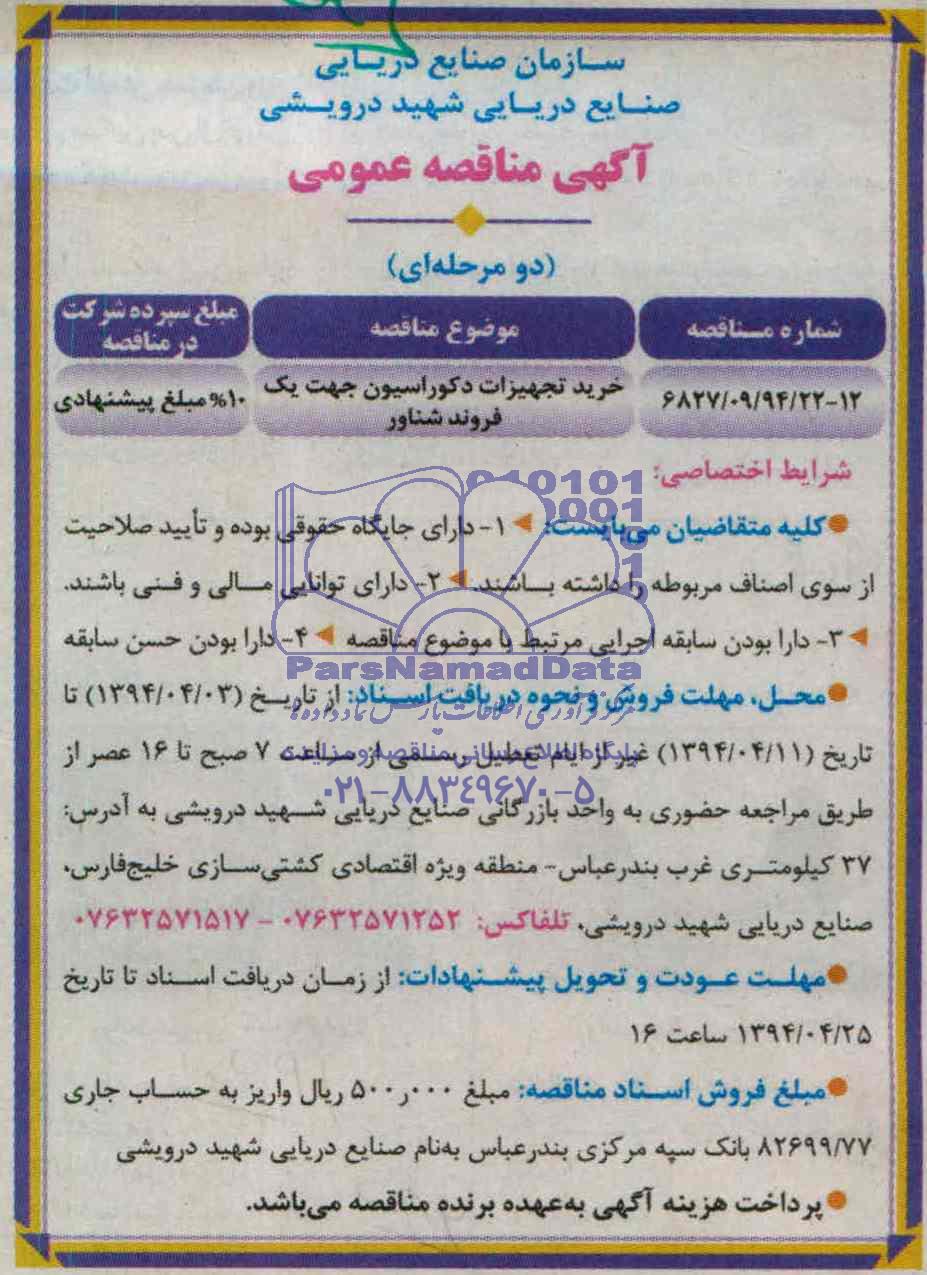 سازمان صنایع دریایی
صنایع دریایی شهید درویشی
آگهی مناقصه عمومی
(دو مرحله‌ای)
شماره مناقصه
موضوع مناقصه
مبلغ سپرده شرکت
در مناقصه
۶۸۲۷/۰۹/۹۴/۲۲-۱۲
خرید تجهیزات دکوراسیون جهت یک
فروند شناور
۱۰% مبلغ پیشنهادی
شرایط اختصاصی:
کلیه متقاضیان می‌بایست: ۱- دارای جایگاه حقوقی بوده و تأیید صلاحیت
از سوی اصناف مربوطه را داشته باشند. ۲- دارای توانایی مالی و فنی باشند.
۳- دارا بودن سابقه اجرایی مرتبط با موضوع مناقصه ۴- دارا بودن حسن سابقه
ParsNamadData
محل، مهلت فروش و نحوه دریافت اسناد: از تاریخ (۱۳۹۴/۰۴/۰۳) تا
تاریخ (۱۳۹۴/۰۴/۱۱) غیر از ایام تعطیل رسمی از ساعت ۷ صبح تا ۱۶ عصر از
۰۲۱-۸۸۳۴۹۶۷۰-۵
طریق مراجعه حضوری به واحد بازرگانی صنایع دریایی شهید درویشی به آدرس:
۳۷ کیلومتری غرب بندرعباس- منطقه ویژه اقتصادی کشتی‌سازی خلیج‌فارس،
صنایع دریایی شهید درویشی، تلفاکس: ۰۷۶۳۲۵۷۱۲۵۲ - ۰۷۶۳۲۵۷۱۵۱۷
مهلت عودت و تحویل پیشنهادات: از زمان دریافت اسناد تا تاریخ
۱۳۹۴/۰۴/۲۵ ساعت ۱۶
مبلغ فروش اسناد مناقصه: مبلغ ۵۰۰٫۰۰۰ ریال واریز به حساب جاری
۸۲۶۹۹/۷۷ بانک سپه مرکزی بندرعباس به‌نام صنایع دریایی شهید درویشی
پرداخت هزینه آگهی به‌عهده برنده مناقصه می‌باشد.